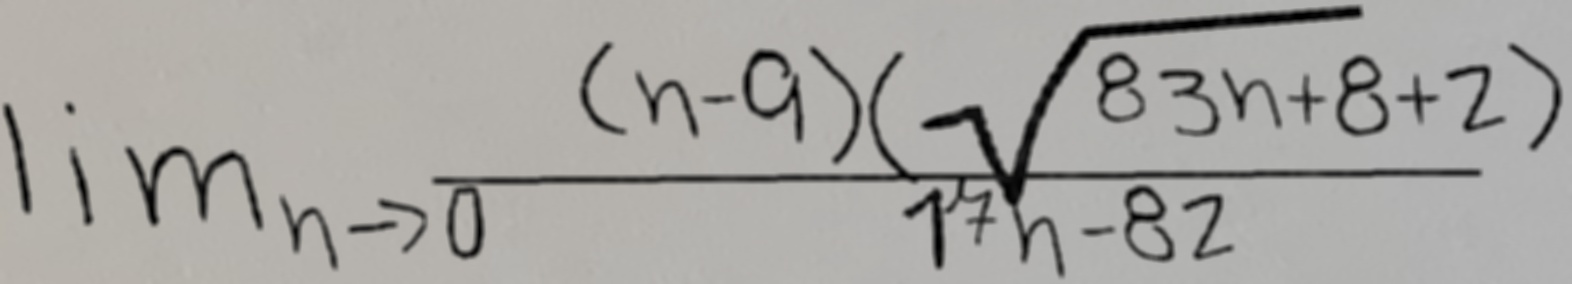 \lim_{n \to 0} \frac{(n-9)(\sqrt{83n+8}+2)}{17n-82}